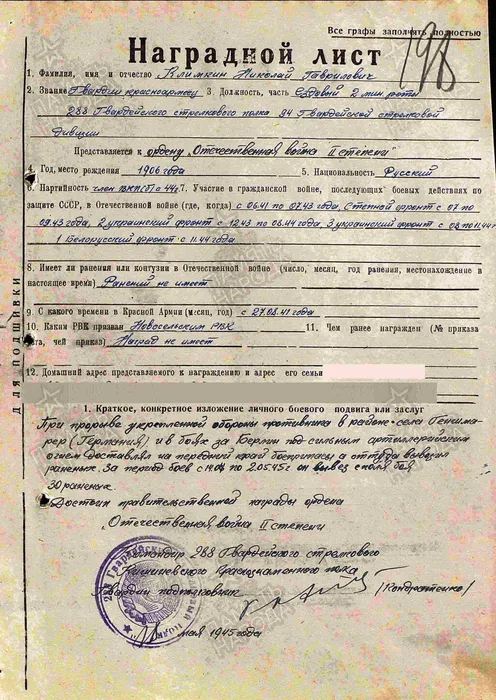 Все графы заполнять полностью
198
Наградной лист
1. Фамилия, имя и отчество Климкин Николай Гаврилович
2. Звание Гвардии красноармеец 3. Должность, часть Ездовый 2 мин роты
288 Гвардейского стрелкового полка 94 Гвардейской стрелковой
дивизии
Представляется к ордену „Отечественная война II степени"
4. Год, место рождения 1906 года 5. Национальность Русский
6. Партийность член ВКП(б) с 44г. 7. Участие в гражданской войне, последующих боевых действиях по
защите СССР, в Отечественной войне (где, когда) с 06.41 по 07.43 год, Степной фронт с 07 по
09.43 год, 2 украинский фронт с 12.43 по 08.44 год 3 украинский фронт с 08 по 11.44г
1 Белорусский фронт с 11.44 года
8. Имеет ли ранения или контузии в Отечественной войне (число, месяц, год ранения, местонахождение в
настоящее время) Ранений не имеет
9. С какого времени в Красной Армии (месяц, год) с 27.08.41 года
10. Каким РВК призван Новосельским РВК 11. Чем ранее награжден (№ приказа
дата, чей приказ) Наград не имеет
12. Домашний адрес представляемого к награждению и адрес его семьи
1. Краткое, конкретное изложение личного боевого подвига или заслуг
При прорыве укрепленной обороны противника в районе села
(Германия) и в боях за Берлин под сильным артиллерийским
огнем доставлял на передний край боеприпасы а оттуда вывозил
раненых. За период боев с по 2.05.45г он вывез с поля боя
30 раненых.
Достоин правительственной награды ордена
Отечественная война II степени
Командир 288 Гвардейского стрелкового
Кишиневского Краснознаменного полка
Гвардии подполковник /Кондратенко/
мая 1945 года
ДЛЯ ПОДШИВКИ